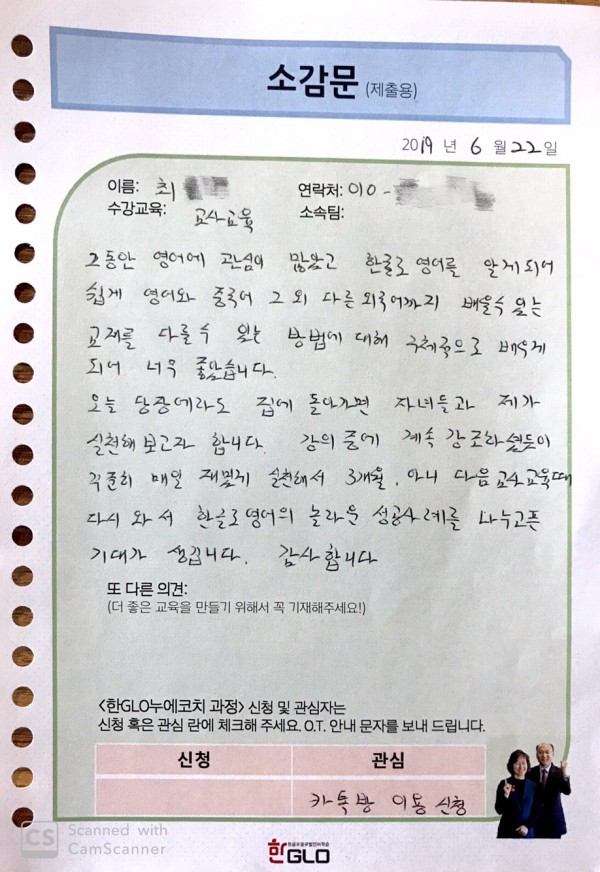 소감문 (제출용)
2019 년 6 월 22 일
이름: 최
연락처: 010 -
수강교육: 교사교육
소속팀:
그동안 영어에 관심이 많았고 한글로 영어를 알게되어
쉽게 영어와 중국어 그 외 다른 외국어까지 배울수 있는
교재를 다룰수 있는 방법에 대해 구체적으로 배우게
되어 너무 좋았습니다.
오늘 당장에라도 집에 돌아가면 자녀들과 제가
실천해보고자 합니다. 강의 중에 계속 강조하셨듯이
꾸준히 매일 재밌게 실천해서 3개월, 아니 다음교사교육때
다시 와서 한글로영어의 놀라운 성공사례를 나누고픈
기대가 생깁니다. 감사합니다
또 다른 의견:
(더 좋은 교육을 만들기 위해서 꼭 기재해주세요!)
<한GLO누에코치 과정> 신청 및 관심자는
신청 혹은 관심 란에 체크해 주세요. O.T. 안내 문자를 보내 드립니다.
신청 관심
카톡방 이용 신청
CS Scanned with
CamScanner
한GLO